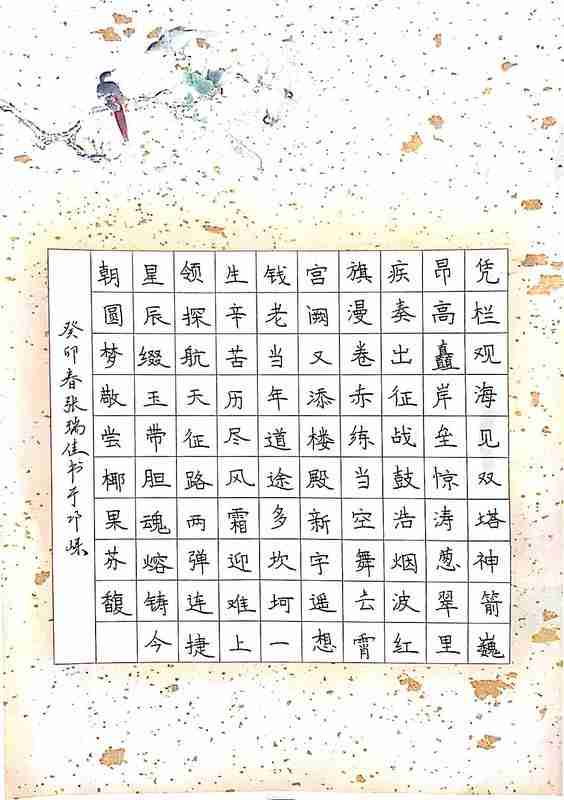 凭栏观海见双塔神箭巍
昂高矗岸垒惊涛葱翠里
疾奏出征战鼓浩烟波红
旗漫卷赤练当空舞云霄
宫阙又添楼殿新字遥想
钱老当年道途多坎坷一
生辛苦历尽风霜迎难上
领探航天征路两弹连捷
星辰缀玉带胆魂熔铸今
朝圆梦敞尝椰果苏馥
癸卯春张瑞佳书于邛崃